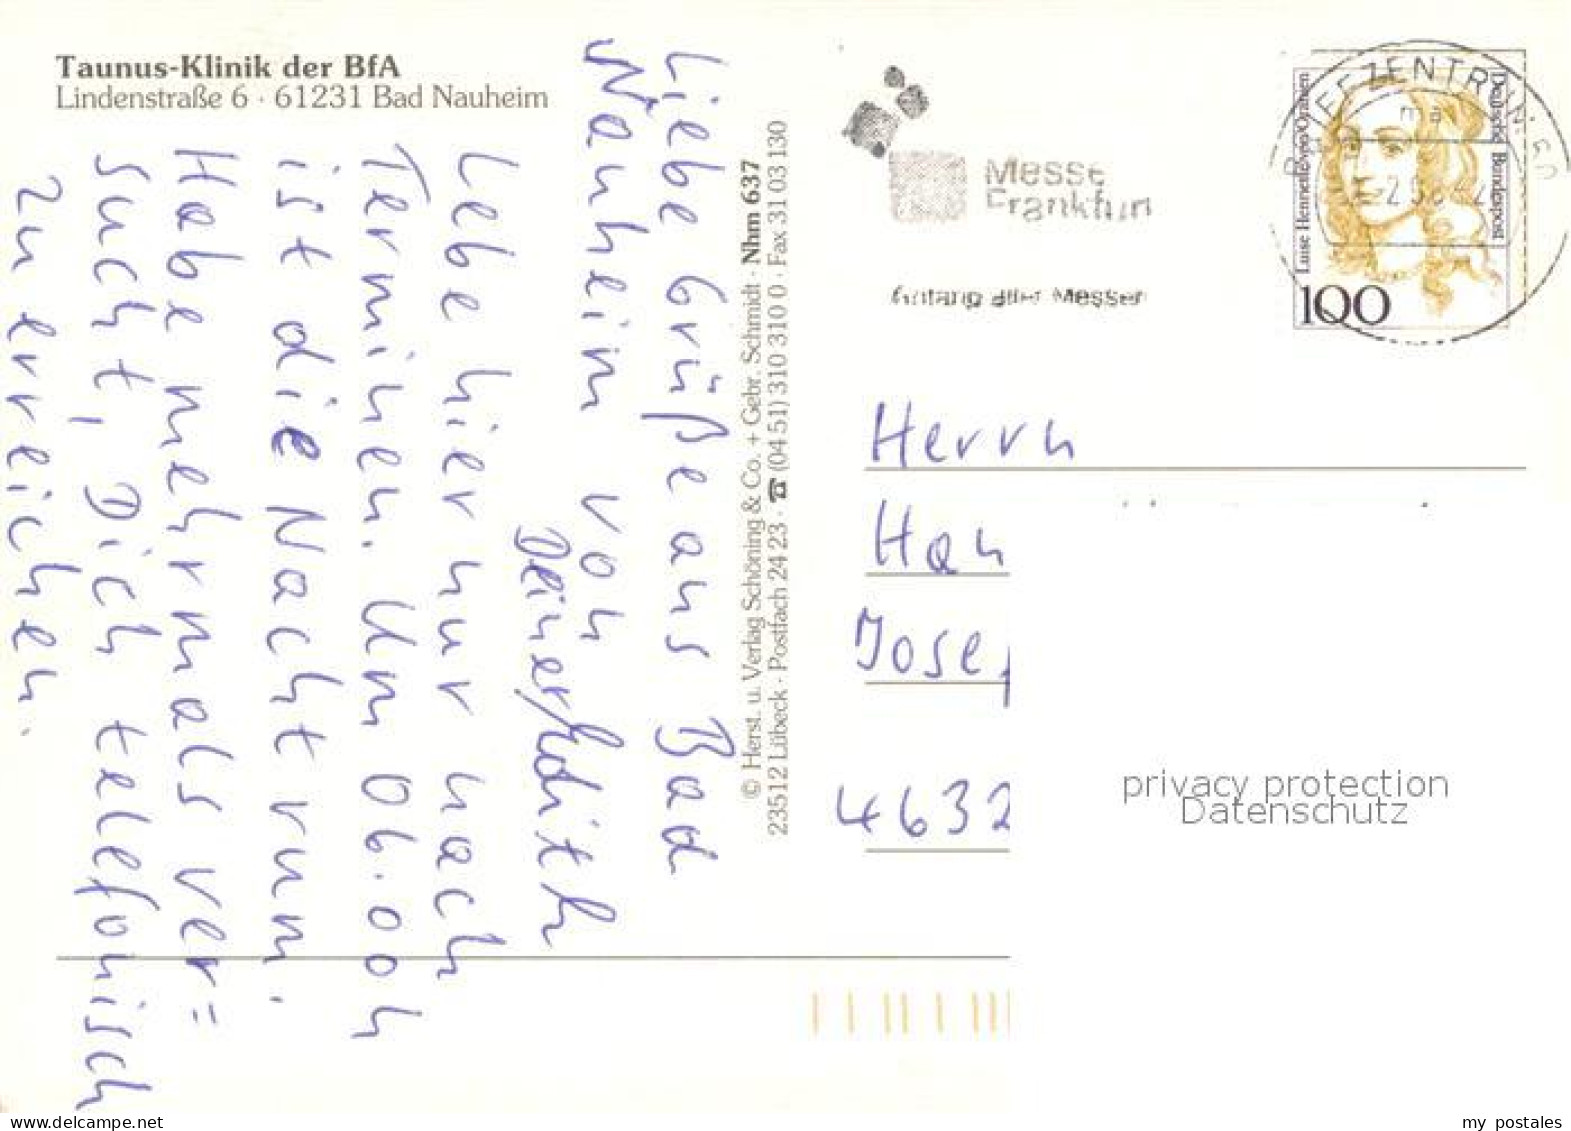 Taunus-Klinik der BfA
Lindenstraße 6 · 61231 Bad Nauheim
Liebe Grüße aus Bad
Nauheim von
Deiner Edith
Lebe hier nur nach
Terminen. Um 06.00h
ist die Nacht rum.
Habe mehrmals ver=
sucht, Dich telefonisch
zu erreichen.
© Herst. u. Verlag Schöning & Co. + Gebr. Schmidt · Nhm 637
23512 Lübeck · Postfach 24 23 · ☎ (04 51) 310 310 0 · Fax 31 03 130
Messe
Frankfurt
BRIEFZENTRUM 60
ma
Luise Henriette von Oranien
Deutsche Bundespost
100
Herrn
Han
Josep
4632
privacy protection
Datenschutz
www.delcampe.net
my_postales